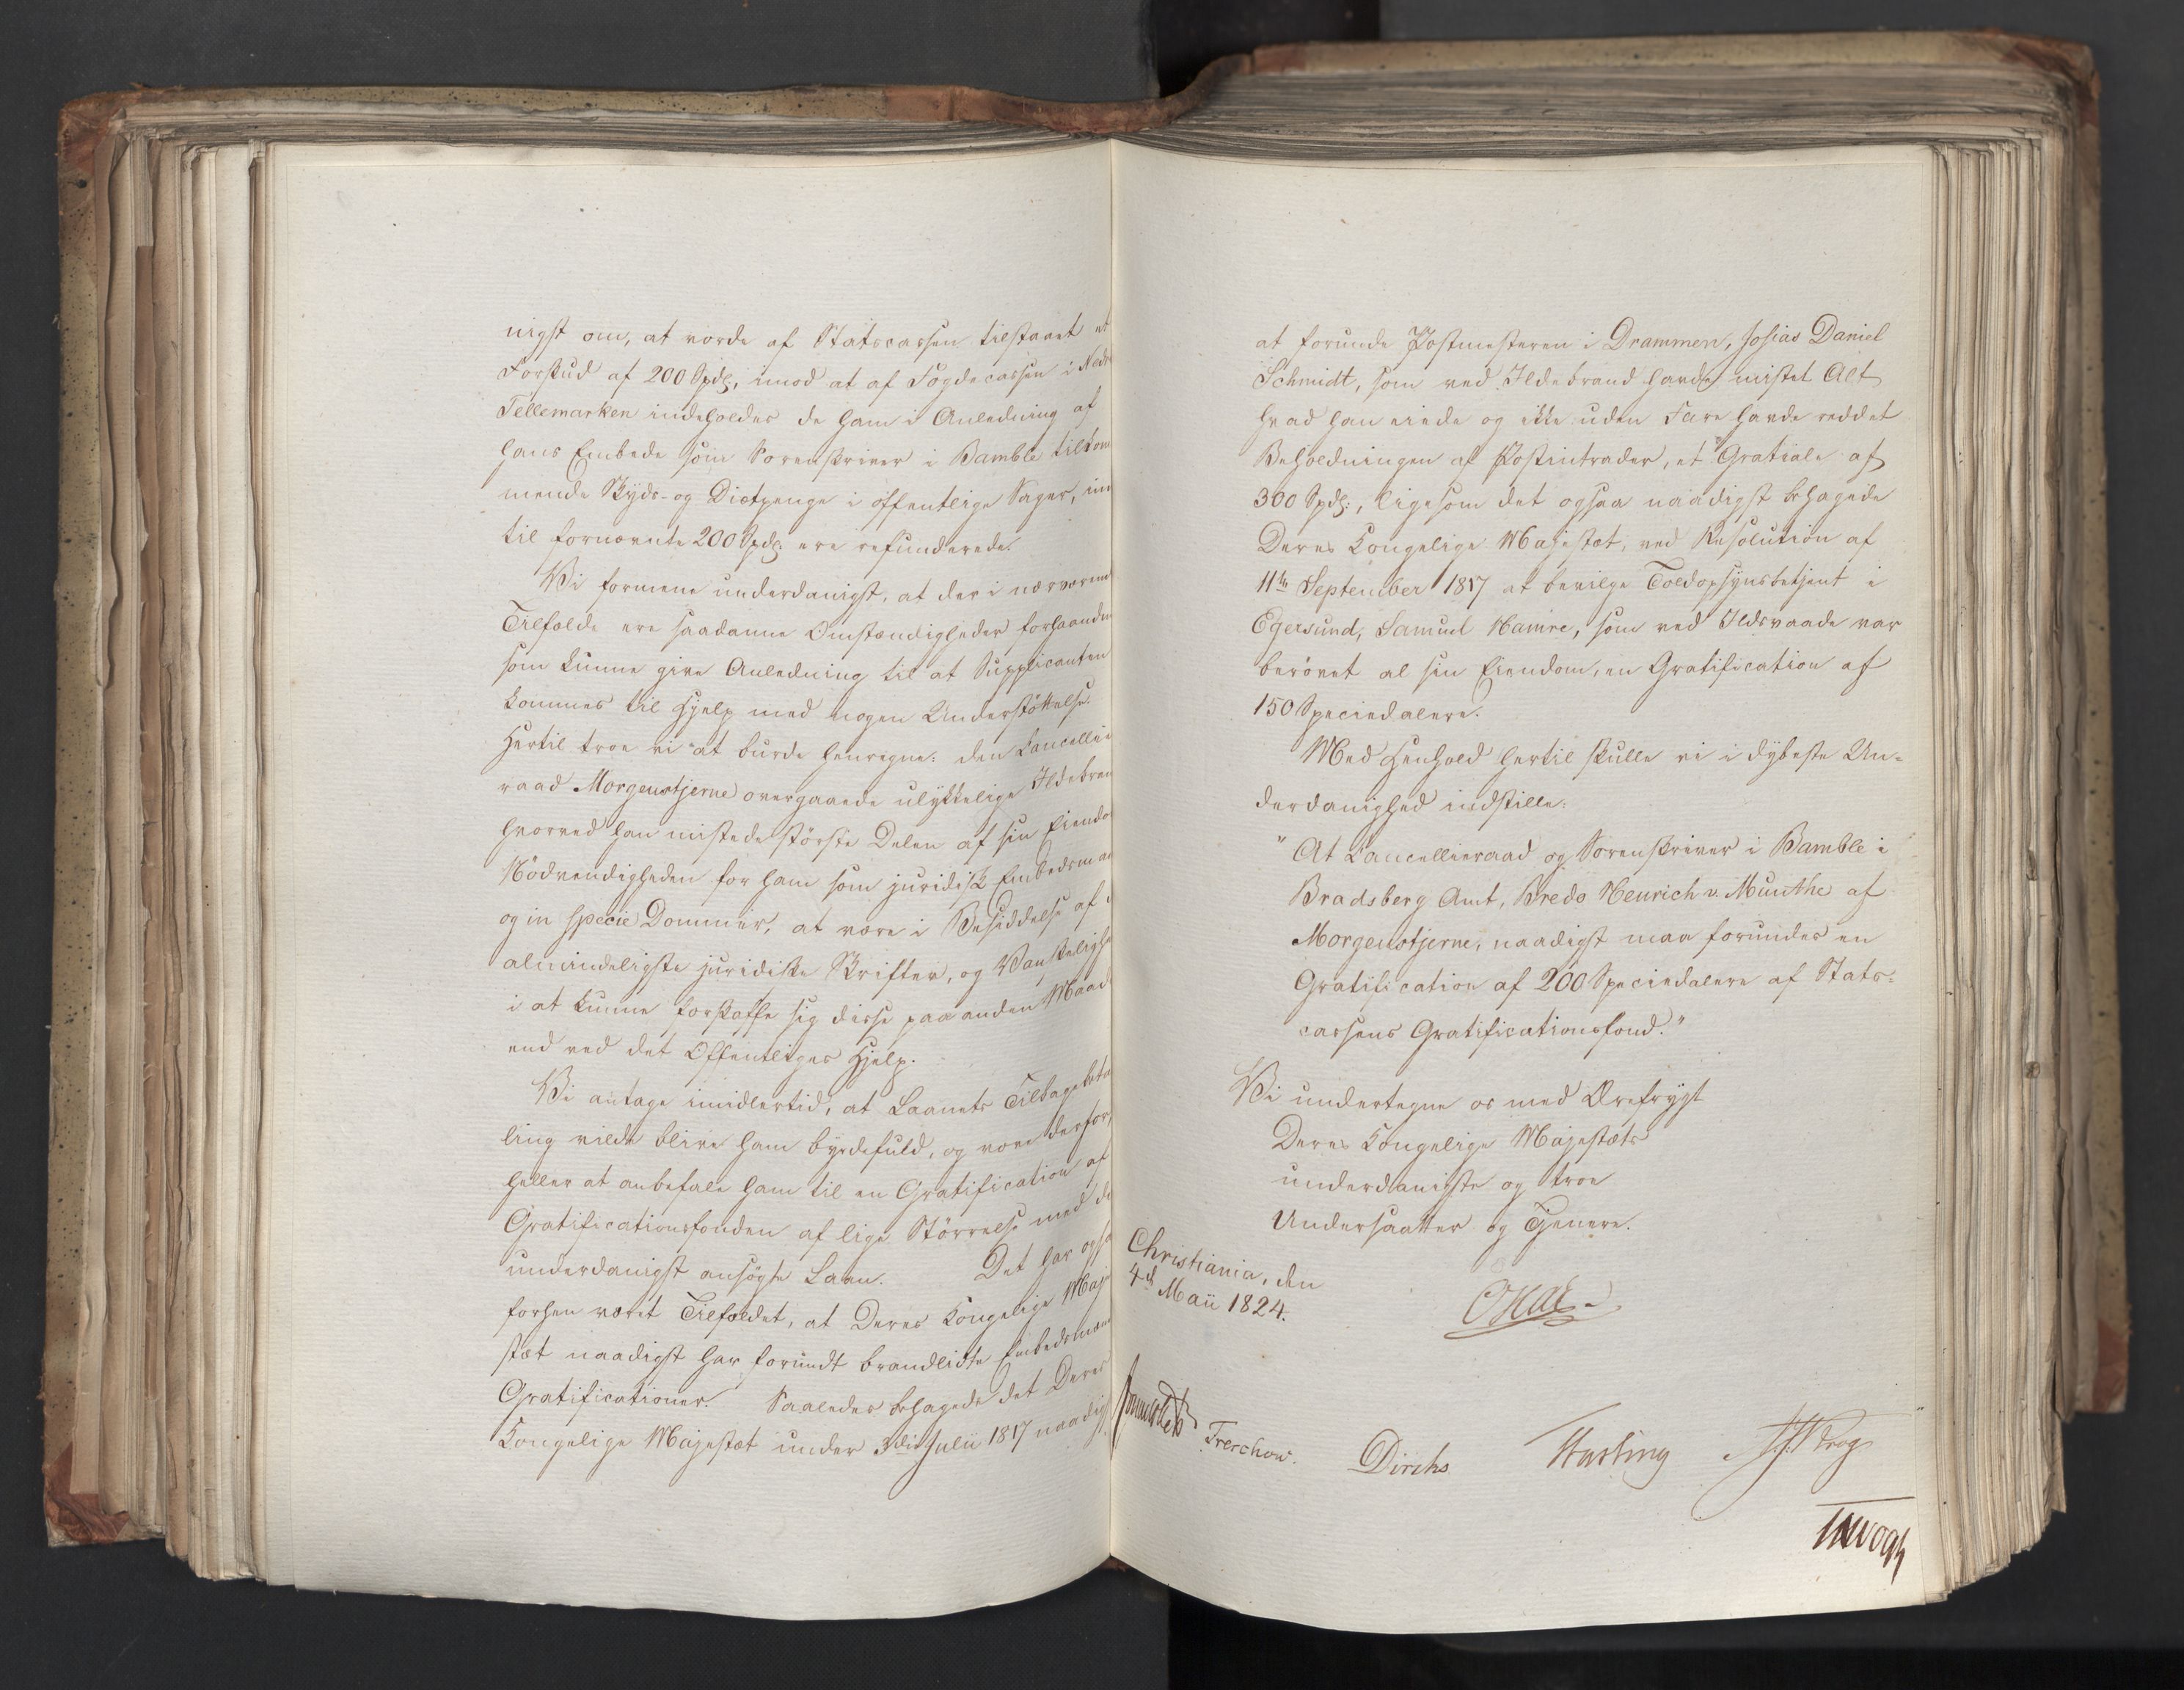 nigst om, at vorde af Statscassen tilstaaet et
Forskud af 200 Spdl:, imod at af Fogdecassen i Nedr
Tellemarken indeholdes de ham i Anledning af
hans Embede som Sorenskriver i Bamble tilkom
mende Skyds- og Diætpenge i offentlige Sager, in
til fornævnte 200 Spdl: ere refunderede.
Vi formene underdanigst, at der i nærværend
Tilfælde ere saadanne Omstændigheder forhaanden
som kunne give Anledning til at Supplicanten
kommes til Hjelp med nogen Understøttelse.
Hertil troe vi at burde henregne: den Cancellie
raad Morgenstjerne overgaaede ulykkelige Ildebran
hvorved han mistede største Delen af sin Eiendo
Nødvendigheden for ham som juridisk Embedsman
og in specie Dommer, at være i Besiddelse af
almindeligste juridiske Skrifter, og Vanskelighe
i at kunne forskaffe sig disse paa anden Maade
end ved det Offentliges Hjelp.
Vi antage imidlertid, at Laanets Tilbagebeta
ling vilde blive ham byrdefuld, og vove derfor,
heller at anbefale ham til en Gratification af
Gratificationsfonden af lige Størrelse med de
underdanigst ansøgte Laan. Det har ogsa
forhen været Tilfældet, at Deres Kongelige Maje
stæt naadigst har forundt brandlidte Embedsmæn
Gratificationer. Saaledes behagede det Deres
Kongelige Majestæt under 3die Julii 1817 naadigst
at forunde Postmesteren i Drammen, Josias Daniel
Schmidt, som ved Ildebrand havde mistet Alt
hvad han eiede og ikke uden Fare havde reddet
Beholdningen af Postintrader, et Gratiale af
300 Spdl:, ligesom det ogsaa naadigst behagede
Deres Kongelige Majestæt, ved Resolution af
11te September 1817 at bevilge Toldopsynsbetjent i
Egersund, Samuel Hamre, som ved Ildsvaade var
berøvet al sin Eiendom, en Gratification af
150 Speciedalere.
Med Henhold hertil skulle vi i dybeste Un-
derdanighed indstille:
"At Cancellieraad og Sorenskriver i Bamble i
Bradsberg Amt, Bredo Henrich v. Munthe af
Morgenstjerne, naadigst maa forundes en
Gratification af 200 Speciedalere af Stats-
cassens Gratificationsfond."
Vi undertegne os med Ærefrygt
Deres Kongelige Majestæts
underdanigste og troe
Undersaatter og Tjenere.
Christiania, den
4de Maii 1824.
Sommerhielm
Treschow. Diriks Fasting J. H. Krog